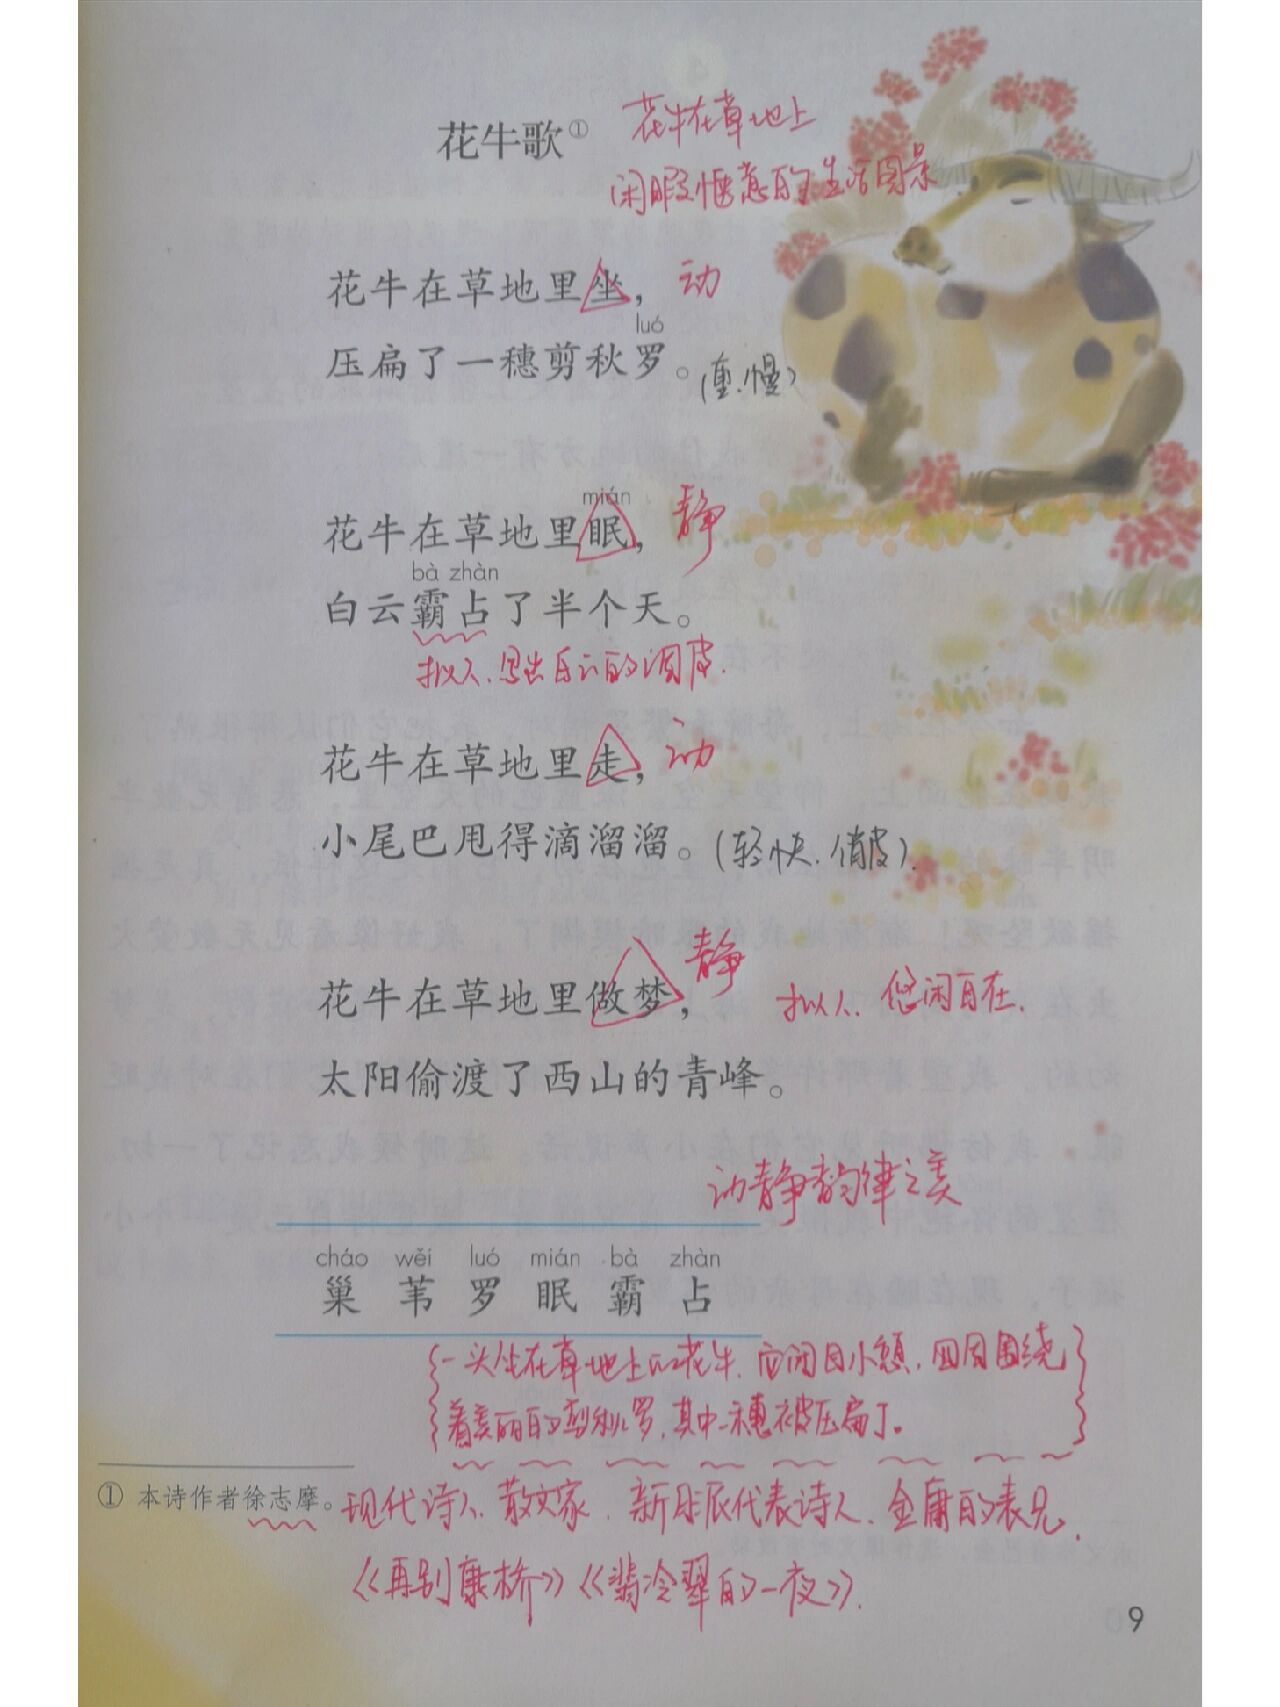 花牛歌① 花牛在草地上
闲暇惬意的生活图景
花牛在草地里坐， 动
luó
压扁了一穗剪秋罗。（重.慢）
mián
花牛在草地里眠， 静
bà zhàn
白云霸占了半个天。
拟人.写出白云的调皮.
花牛在草地里走， 动
小尾巴甩得滴溜溜。（轻快.俏皮）.
花牛在草地里做梦， 静
拟人. 悠闲自在.
太阳偷渡了西山的青峰。
动静韵律之美
cháo wěi luó mián bà zhàn
巢 苇 罗 眠 霸 占
一头坐在草地上的花牛.闭目小憩.四周围绕
着美丽的剪秋罗,其中一穗被压扁了。
① 本诗作者徐志摩。现代诗人.散文家.新月派代表诗人.金庸的表兄.
《再别康桥》《翡冷翠的一夜》.
9